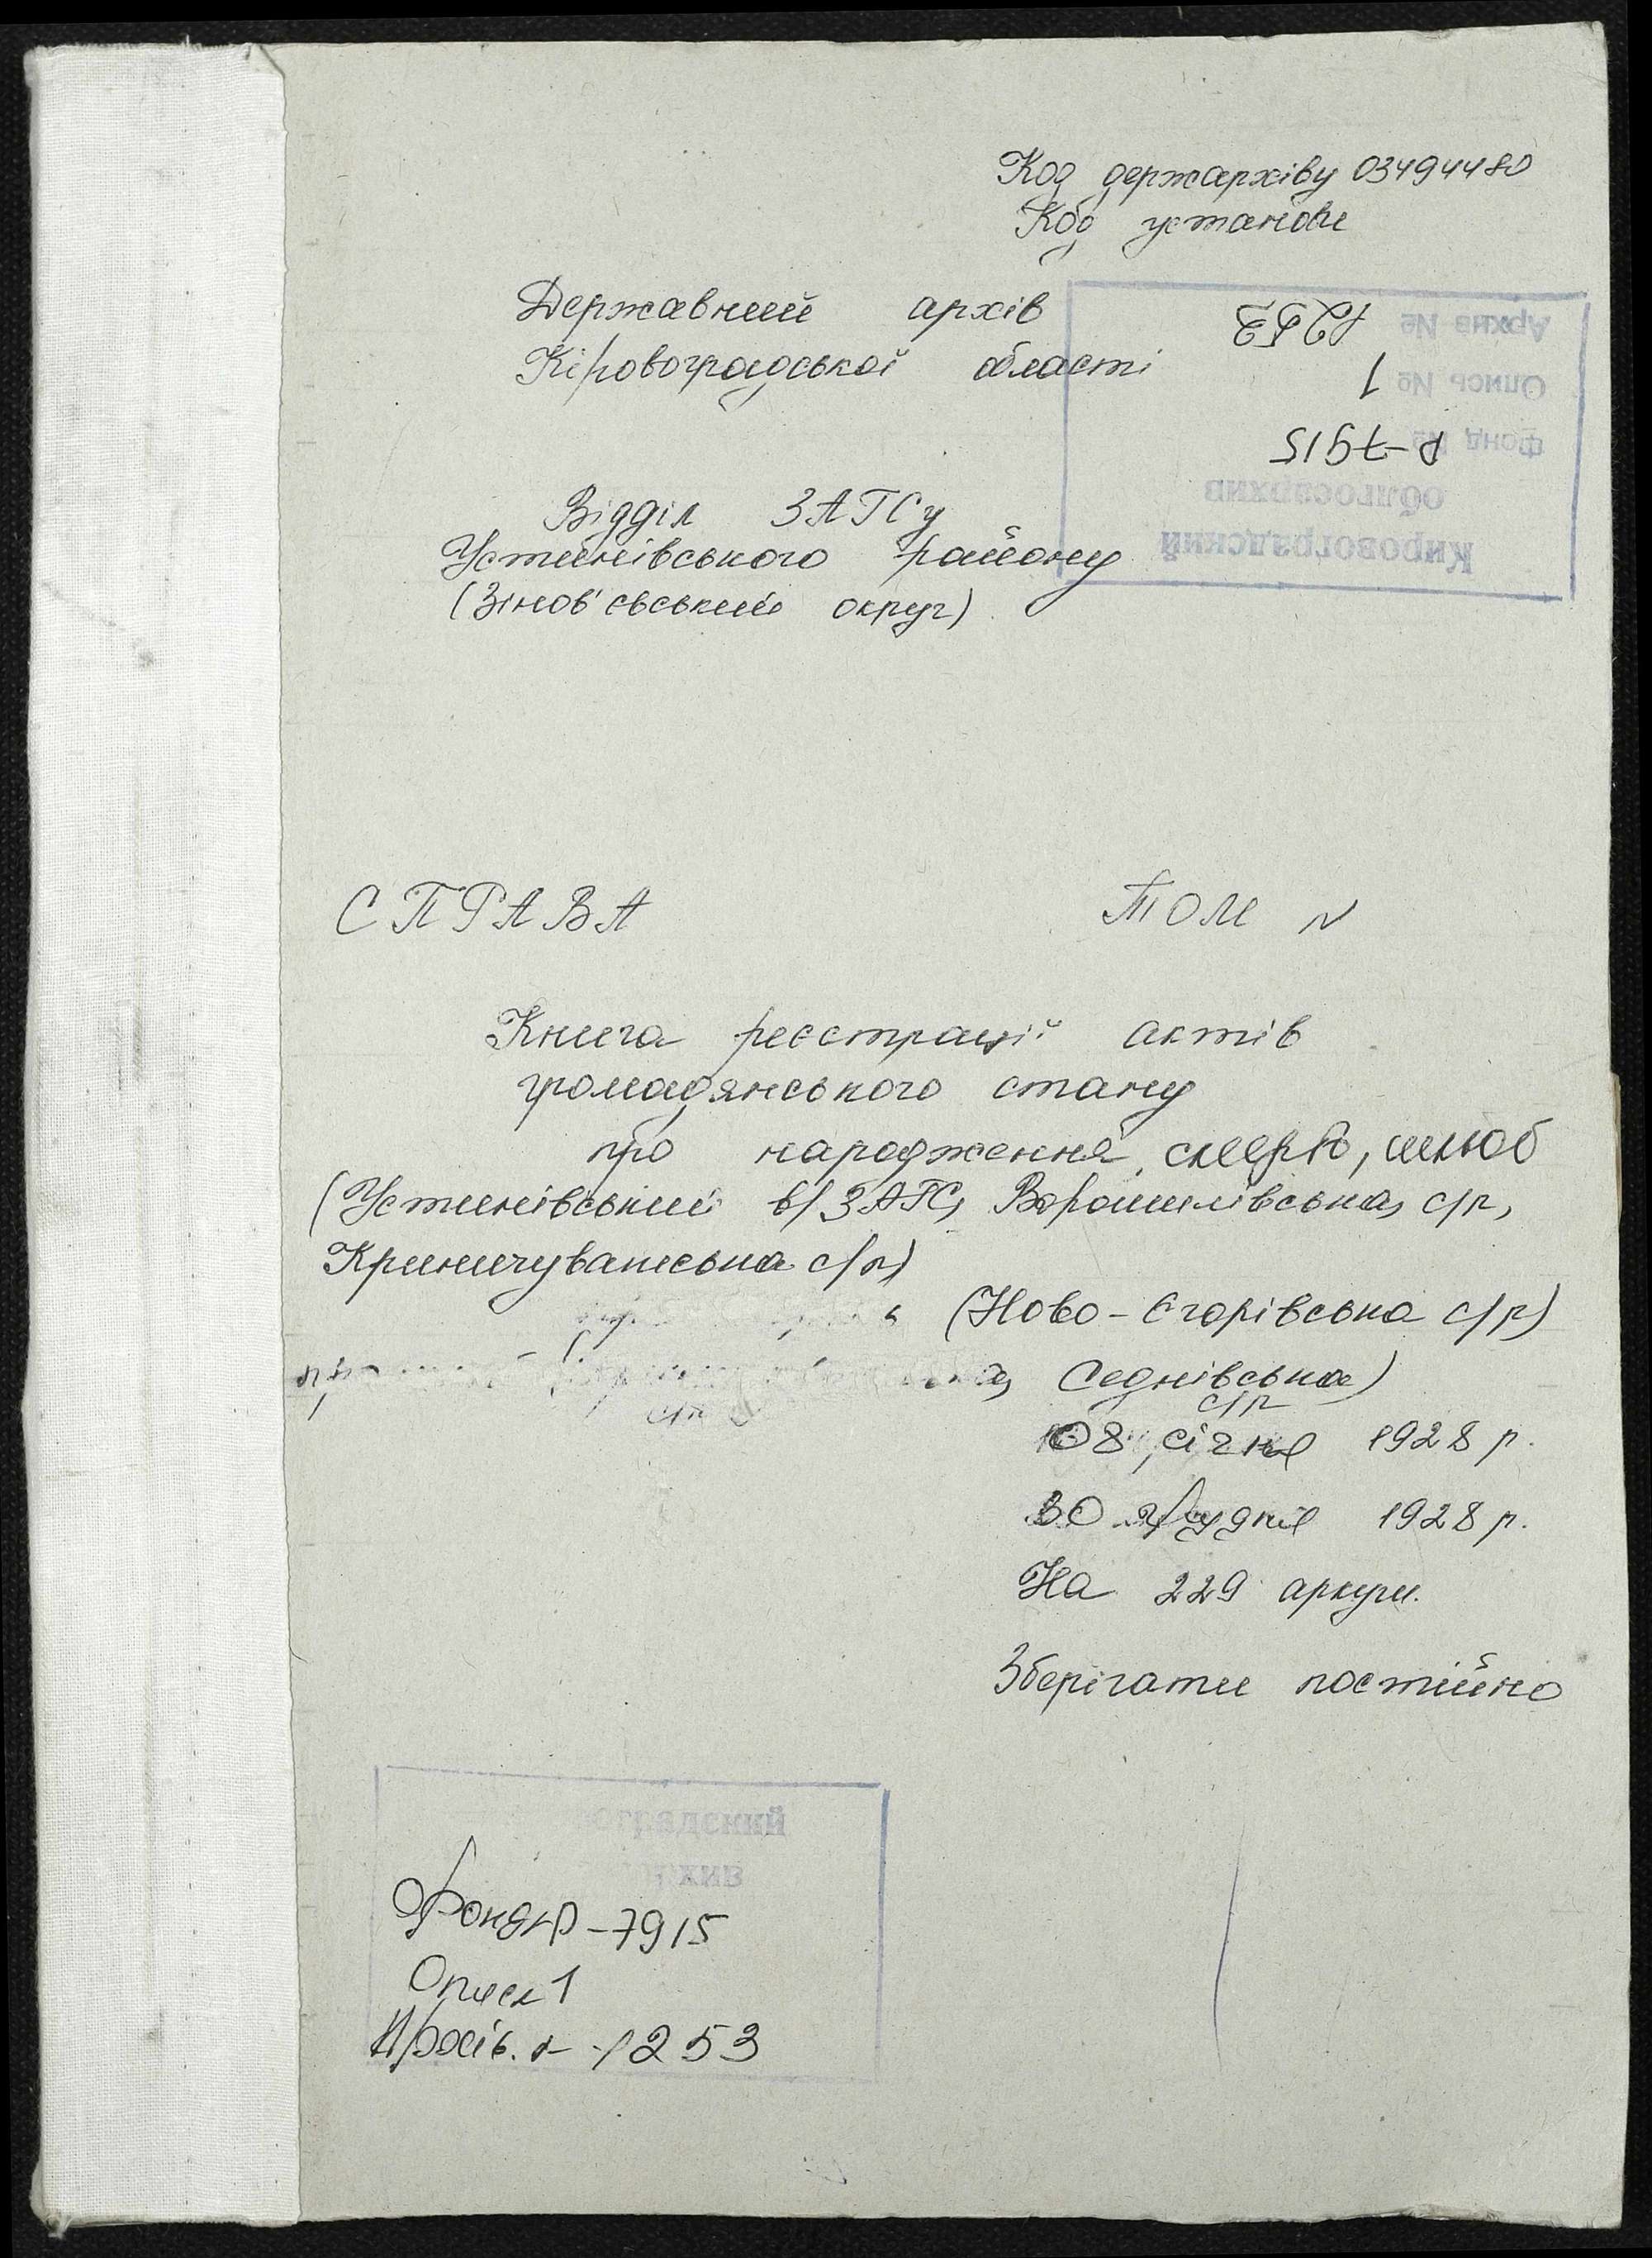 Код держархіву 03494480
Код установи
Державний архів
Кіровоградської області
Архив № 1253
Опись № 1
Фонд № Р-7915
облгосархив
Кировоградский
Відділ ЗАГСу
Устинівського району
(Зінов'євський округ)
СПРАВА ТОМ N
Книга реєстрації актів
громадянського стану
про народження, смерть, шлюб
(Устинівський в/ЗАГС, Ворошилівська с/р,
Криничуватська с/р)
(Ново-Єгорівська с/р)
Седнівська)
с/р
08 січня 1928 р.
30 грудня 1928 р.
На 229 аркуш.
Зберігати постійно
оградский
хив
Фонд Р-7915
Опись 1
Архів. № 1253